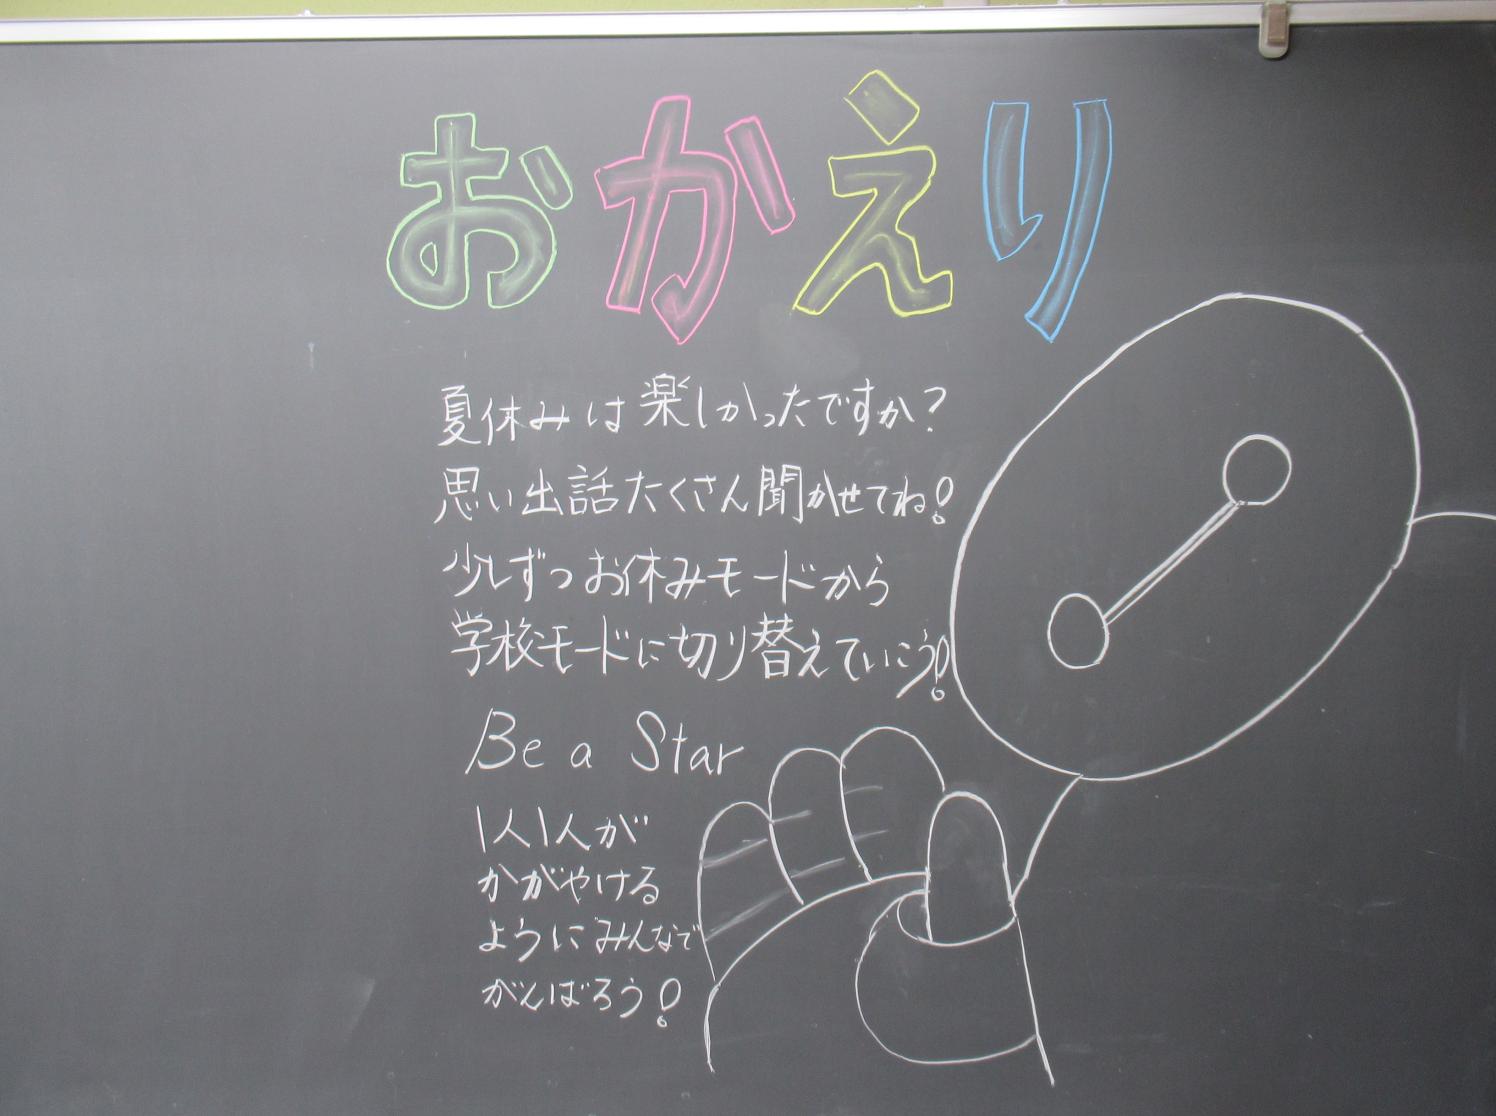 おかえり
夏休みは楽しかったですか?
思い出話たくさん聞かせてね!
少しずつお休みモードから
学校モードに切り替えていこう!
Be a Star
1人1人が
かがやける
ようにみんなで
がんばろう!